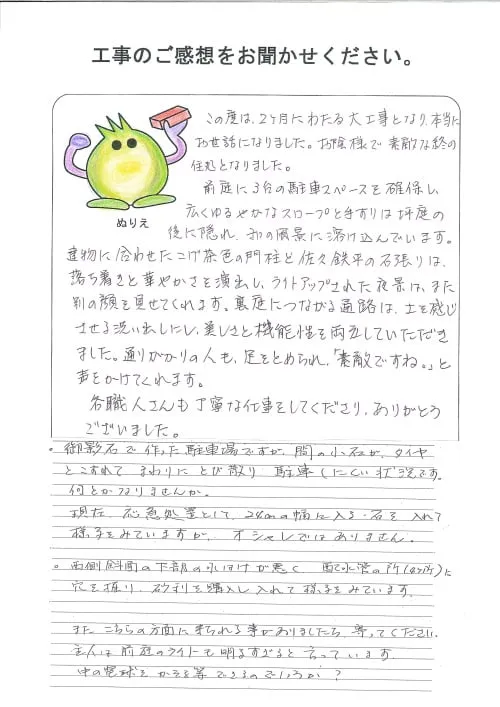 工事のご感想をお聞かせください。
ぬりえ
この度は、2ヶ月にわたる大工事となり、本当に
お世話になりました。お陰様で素敵な終の
住処となりました。
前庭に3台の駐車スペースを確保し、
広くゆるやかなスロープと手すりは坪庭の
後に隠れ、和の風景に溶け込んでいます。
建物に合わせたこげ茶色の門柱と佐久鉄平の石張りは、
落ち着きと華やかさを演出し、ライトアップされた夜景は、また
別の顔を見せてくれます。裏庭につながる通路は、土を感じ
させる洗い出しにし、美しさと機能性を両立していただき
ました。通りがかりの人も、足をとめられ、「素敵ですね。」と
声をかけてくれます。
各職人さんも丁寧な仕事をしてくださり、ありがとう
ございました。
。御影石で作った駐車場ですが、間の小石が、タイヤ
とこすれて まわりにとび散り 駐車しにくい状況です。
何とかなりませんか。
現在、応急処置として、24cmの幅に入る石を入れて
様子をみていますが、オシャレではありません。
。西側斜面の下部の水はけが悪く 配水管の所(4ヶ所)に
穴を掘り、砂利を購入し入れて様子をみています。
また こちらの方面に来られる事がありましたら、寄ってください。
主人は前庭のライトも明るすぎると言っています。
中の電球をかえる等できるのでしょうか?